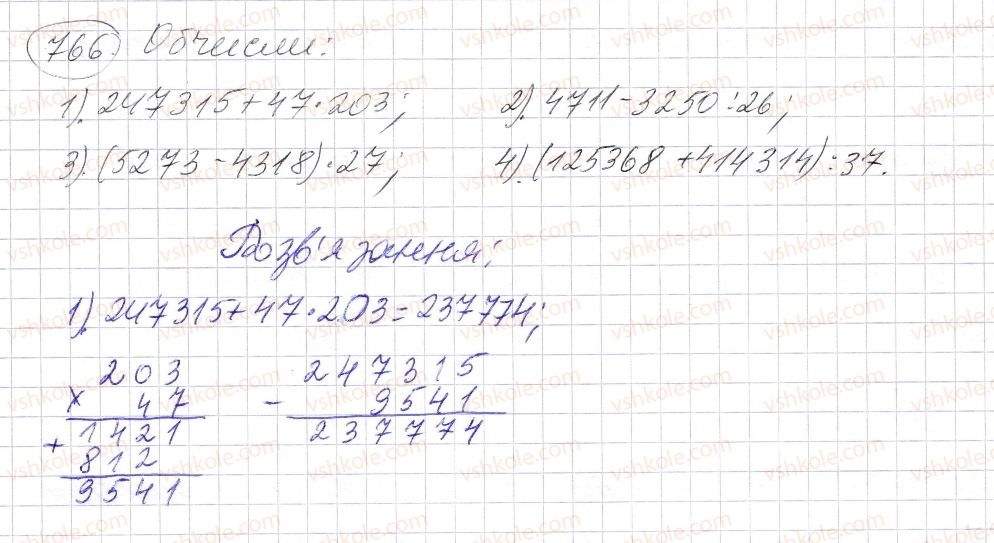 766. Обчисли:
1). 247315+47·203; 2). 4711-3250:26;
3). (5273-4318)·27; 4). (125368+414314):37.
Розв'язання:
1). 247315+47·203=237774;
203 247315
× 47 - 9541
+ 1421 237774
812
9541